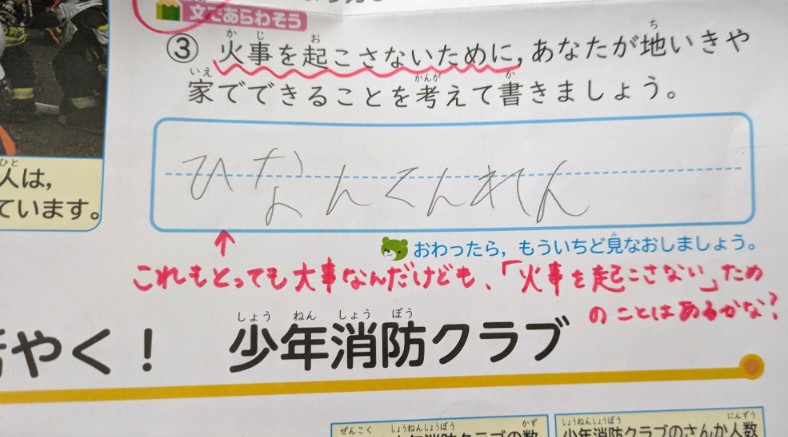 文であらわそう
③ 火事を起こさないために，あなたが地いきや
家でできることを考えて書きましょう。
ひなんくんれん
おわったら，もういちど見なおしましょう。
これもとっても大事なんだけども、「火事を起こさない」ため
のことはあるかな？
人は，
ています。
やく！ 少年消防クラブ
ぜんこく しょうねんしょうぼう かず
しょうねんしょうぼう にんずう
少年消防クラブのさんか人数